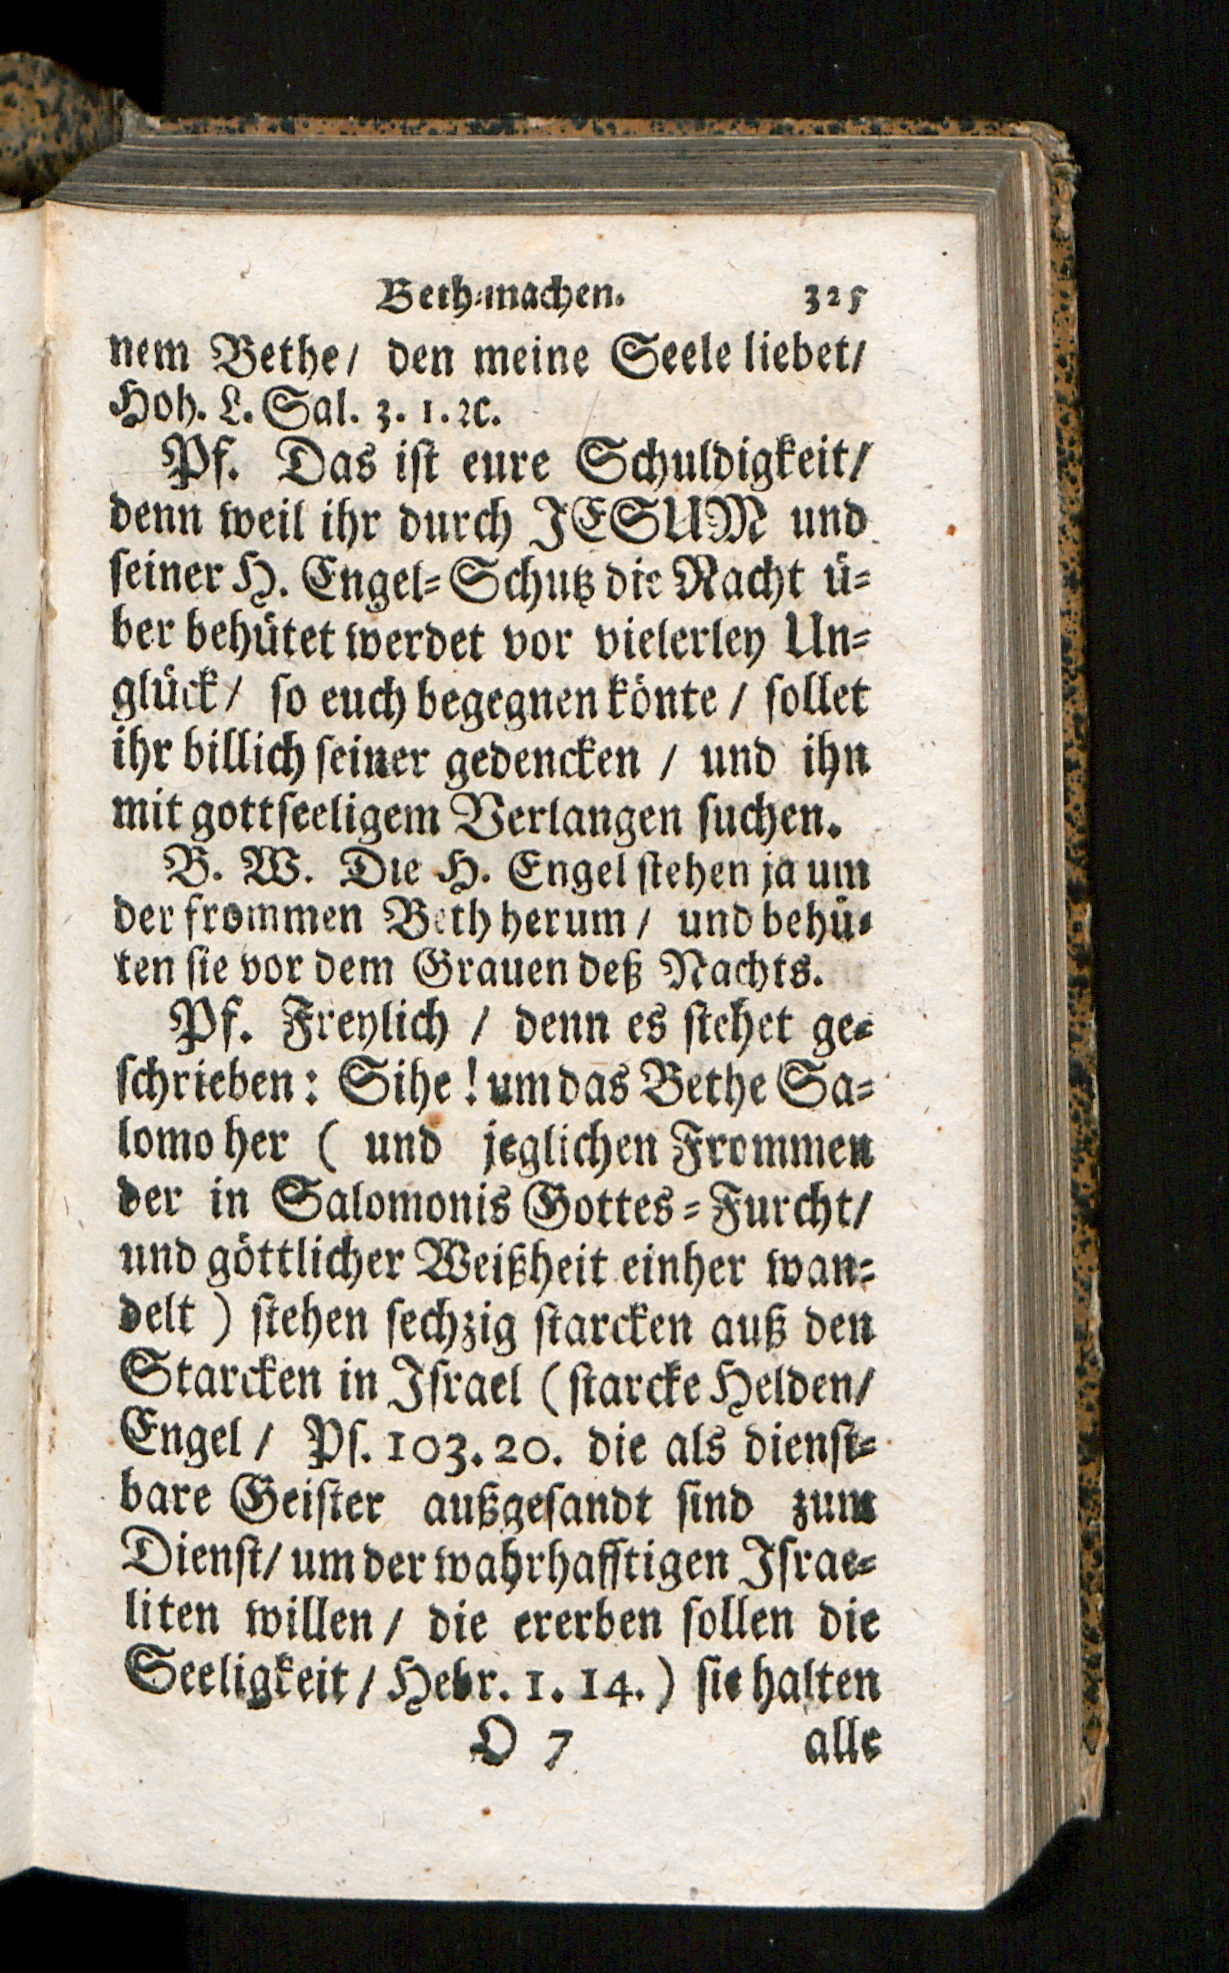 Beth-machen. 325
nem Bethe/ den meine Seele liebet/
Hoh. L. Sal. 3. 1. ꝛc.
Pf. Das ist eure Schuldigkeit/
denn weil ihr durch JESUM und
seiner H. Engel-Schutz die Nacht ü-
ber behütet werdet vor vielerley Un-
glück/ so euch begegnen könte / sollet
ihr billich seiner gedencken / und ihn
mit gottseeligem Verlangen suchen.
B. W. Die H. Engel stehen ja um
der frommen Beth herum / und behü-
ten sie vor dem Grauen deß Nachts.
Pf. Freylich / denn es stehet ge-
schrieben: Sihe! um das Bethe Sa-
lomo her ( und jeglichen Frommen
der in Salomonis Gottes-Furcht/
und göttlicher Weißheit einher wan-
delt ) stehen sechzig starcken auß den
Starcken in Israel ( starcke Helden/
Engel / Ps. 103. 20. die als dienst-
bare Geister außgesandt sind zum
Dienst/ um der wahrhafftigen Israe-
liten willen / die ererben sollen die
Seeligkeit / Hebr. 1. 14.) sie halten
O 7 alle